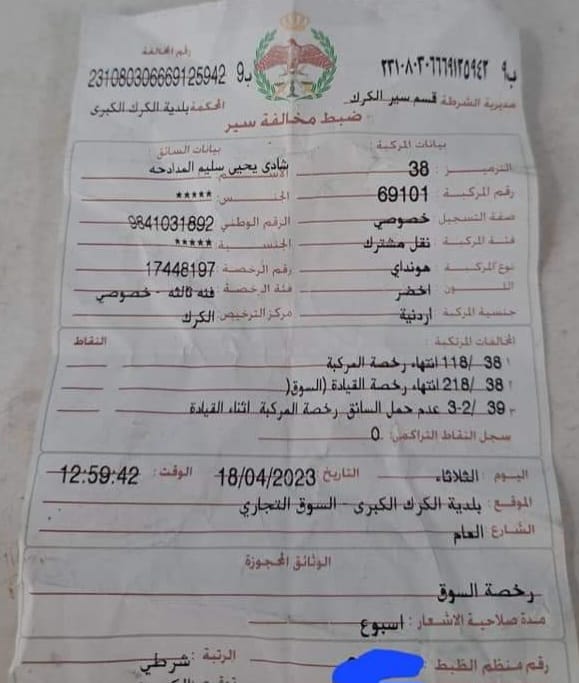 رقم المخالفة
ب٩ 231080306669125942 ب٩ ٢٣١٠٨٠٣٠٦٦٦٩١٢٥٩٤٢
مديرية الشرطة قسم سير الكرك المحكمة بلدية الكرك الكبرى
ضبط مخالفة سير
بيانات المركبة :
الترميز : 38
رقم المركبة : 69101
صفة التسجيل : خصوصي
فئة المركبة : نقل مشترك
نوع المركبة : هونداي
اللون : اخضر
جنسية المركبة : اردنية
بيانات السائق :
الاسم : شادي يحيى سليم المدادحه
الجنس : *****
الرقم الوطني : 9841031892
الجنسية : *****
رقم الرخصة : 17448197
فئة الرخصة : فئه ثالثه - خصوصي
مركز الترخيص : الكرك
المخالفات المرتكبة : النقاط
١ 38 /118 انتهاء رخصة المركبة
٢ 38 /218 انتهاء رخصة القيادة (السوق(
٣ 39 /3-2 عدم حمل السائق رخصة المركبة اثناء القيادة
سجل النقاط التراكمي : 0
اليوم : الثلاثاء التاريخ : 18/04/2023 الوقت : 12:59:42
الموقع : بلدية الكرك الكبرى - السوق التجاري
الشارع : العام
الوثائق المحجوزة
رخصة السوق
مدة صلاحية الاشعار : اسبوع
رقم منظم الضبط : الرتبة : شرطي